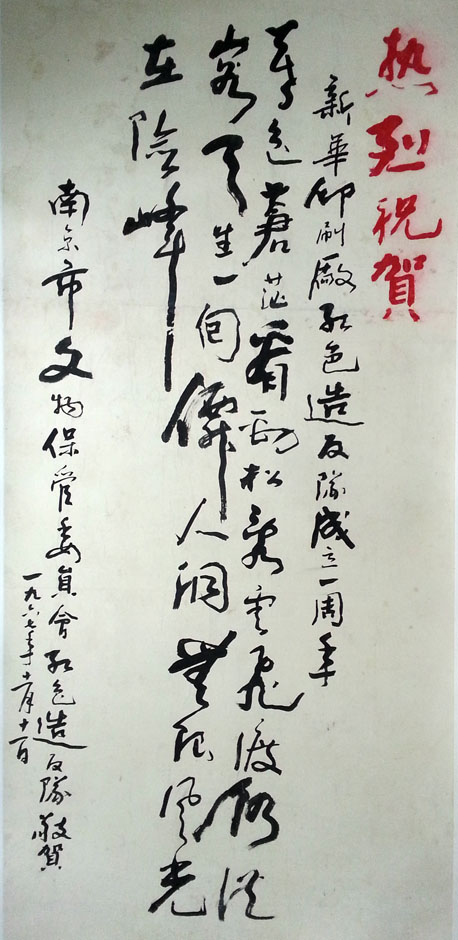 热烈祝贺
新華印刷廠红色造反隊成立一周年
暮色蒼茫看劲松乱雲飛渡仍從
容天生一個僊人洞無限風光
在險峰
南京市文物保管委員會红色造反隊敬賀
一九六七年十二月十二日